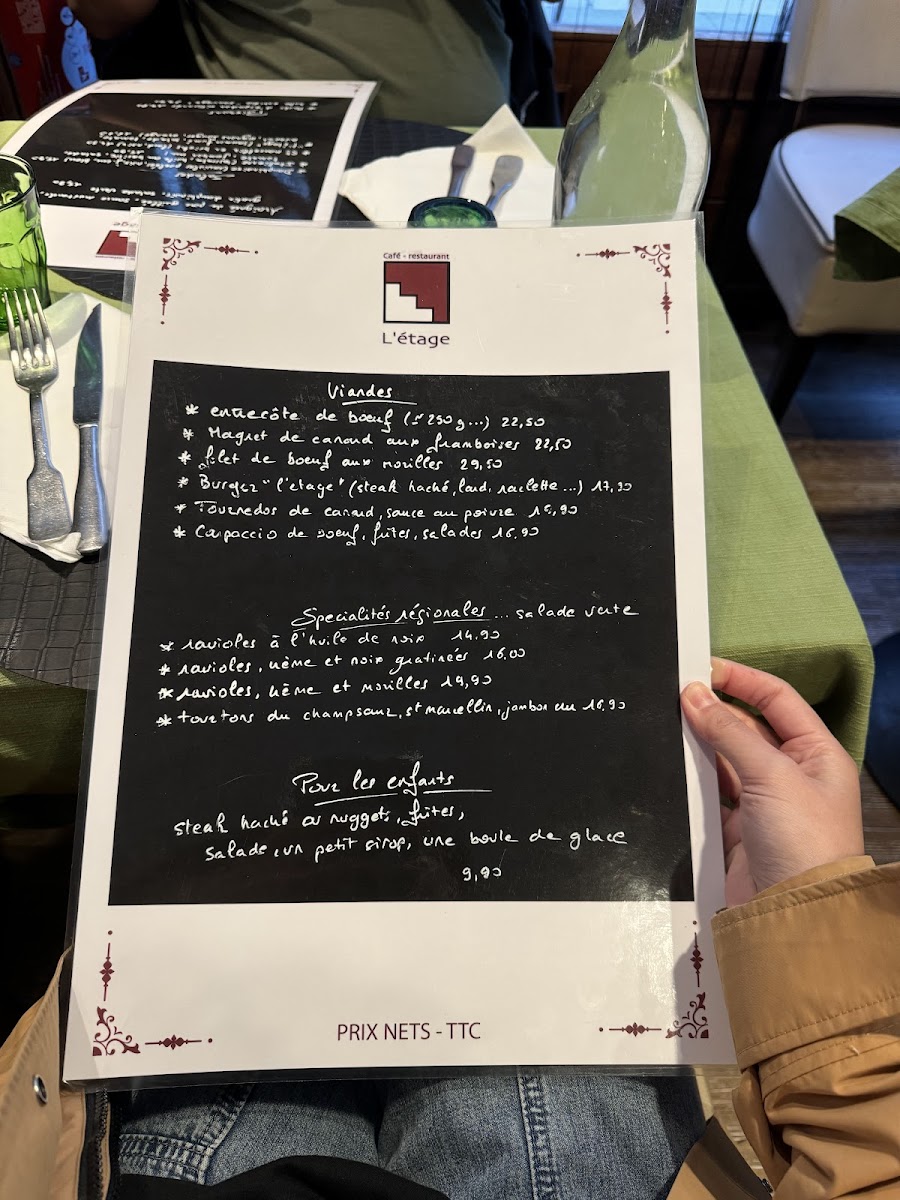 Café - restaurant
L'étage
Viandes
* entrecôte de bœuf (≃ 250 g...) 22,50
* Magret de canard aux framboises 22,50
* filet de boeuf aux morilles 29,50
* Burger "l'étage" (steak haché, lard, raclette...) 17,90
* Tournedos de canard, sauce au poivre
* Carpaccio de boeuf, frites, salades 16.90
Spécialités régionales ... salade verte
* ravioles à l'huile de noix 14.90
* ravioles, crème et noix gratinées 16.00
* ravioles, crème et morilles 19,90
* tourtons du champsaur, st marcellin, jambon cru 16.90
Pour les enfants
steak haché ou nuggets, frites,
salade, un petit sirop, une boule de glace
9,90
PRIX NETS - TTC